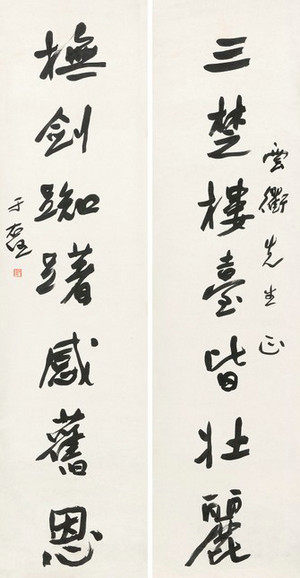 三楚樓臺皆壯麗
雲衢先生正
撫劍踟躇感舊恩
于右任